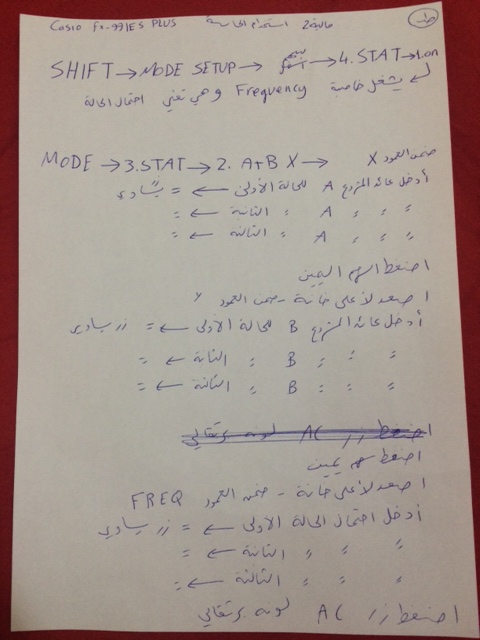 Casio fx-991ES PLUS مالية 2 استخدام الحاسبة
SHIFT → MODE SETUP → سهم أسفل → 4. STAT → 1. on
يشغل خاصية Frequency وهي تعني احتمال الحالة
MODE → 3. STAT → 2. A+BX → ضمن العمود X
أدخل عائد المشروع A للحالة الأولى ← = يساوي
〃 〃 〃 A 〃 الثانية ← =
〃 〃 〃 A 〃 الثالثة ← =
اضغط السهم اليمين
اصعد لأعلى خانة - ضمن العمود y
أدخل عائد المشروع B للحالة الأولى ← = زر يساوي
〃 〃 〃 B 〃 الثانية ← =
〃 〃 〃 B 〃 الثالثة ← =
اضغط زر AC لونه برتقالي
اضغط سهم يمين
اصعد لأعلى خانة - ضمن العمود FREQ
أدخل احتمال الحالة الأولى ← = زر يساوي
〃 〃 〃 الثانية ← =
〃 〃 〃 الثالثة ← =
اضغط زر AC لونه برتقالي